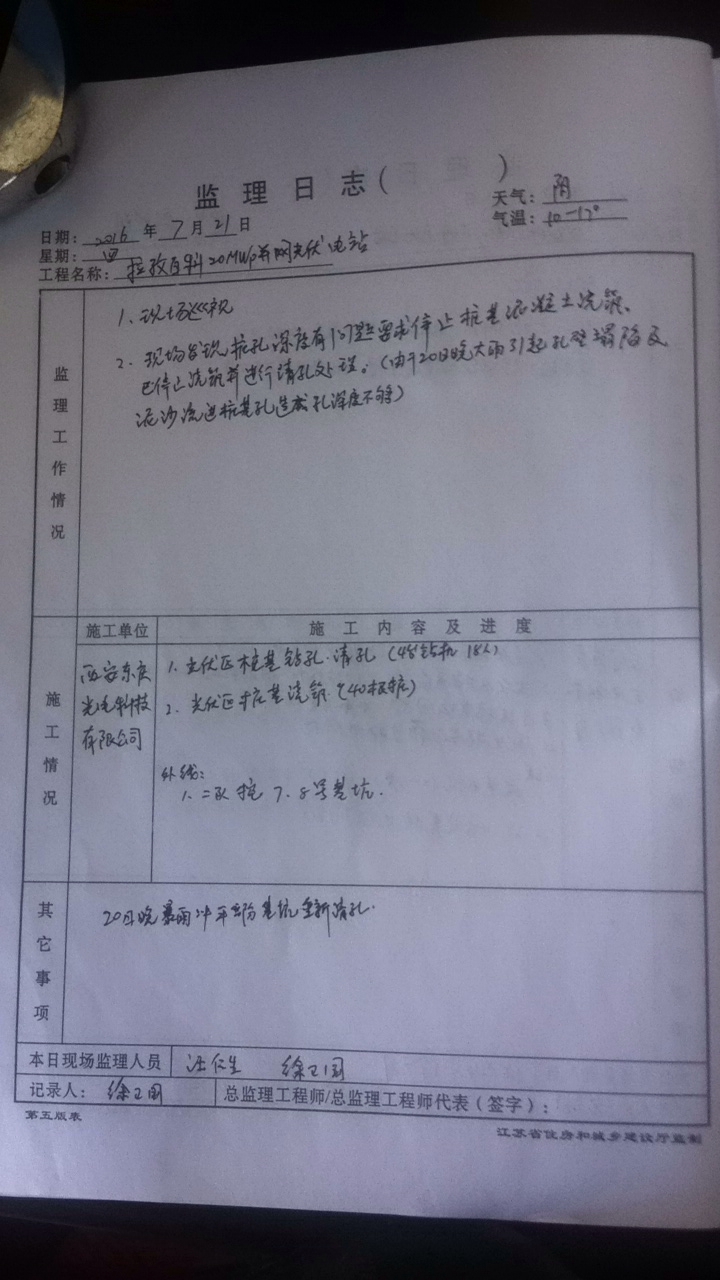 监理日志（ ）
天气：阴
日期：2016年7月21日
气温：10-17°
星期：四
工程名称：拉孜百科20MWp并网光伏电站
监理工作情况
1、现场巡视
2、现场发现桩孔深度有问题要求停止桩基混凝土浇筑、
已停止浇筑并进行清孔处理。（由于20日晚大雨引起孔壁塌陷及
泥沙流进桩基孔造成孔深度不够）
施工情况
施工单位
施工内容及进度
西安东庆
光电科技
有限公司
1、光伏区桩基钻孔.清孔（4台钻机 18人）
2、光伏区桩基浇筑.（40根桩）
外线：
1、二队挖7、8号基坑.
其它事项
20日晚暴雨冲平部份基坑重新清孔.
本日现场监理人员 汪仁生 徐卫国
记录人：徐卫国 总监理工程师/总监理工程师代表（签字）：
第五版表
江苏省住房和城乡建设厅监制